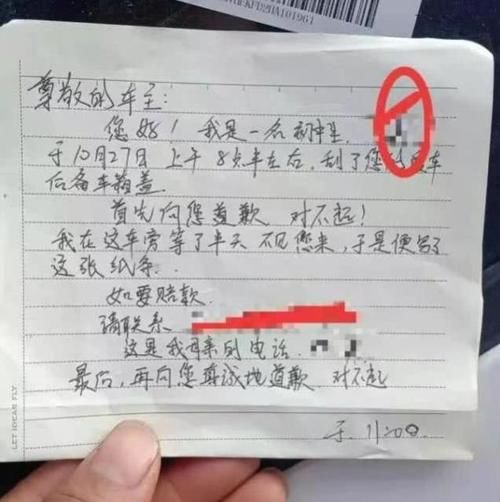 尊敬的车主：
您好！我是一名初中生
于10月27日上午8点半左右，刮了您车
后备车箱盖
首先向您道歉 对不起！
我在这车旁等了半天 不见您来，于是便写了
这张纸条．
如要赔款
请联系
这是我母亲的电话．
最后，再向您真诚地道歉 对不起
于．11:20
LET IDEAR FLY